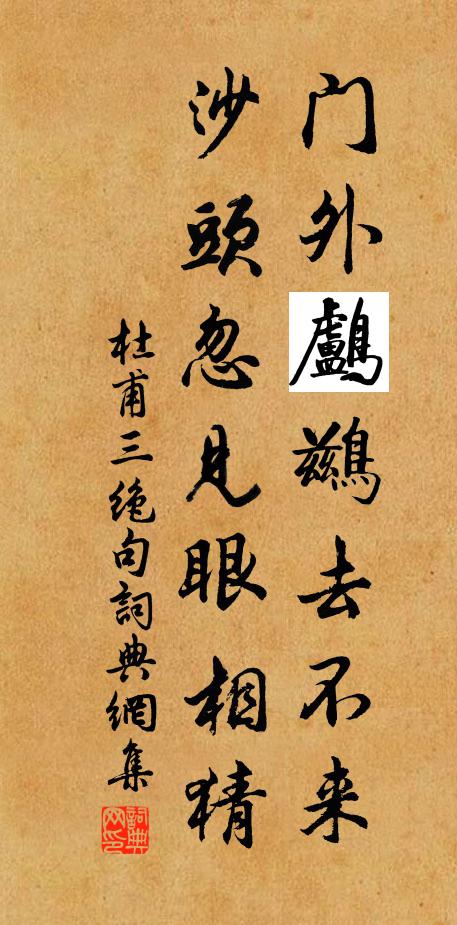 门外鸕鹚去不来
沙頭忽見眼相猜
杜甫三绝句詞典網集
詞典网印